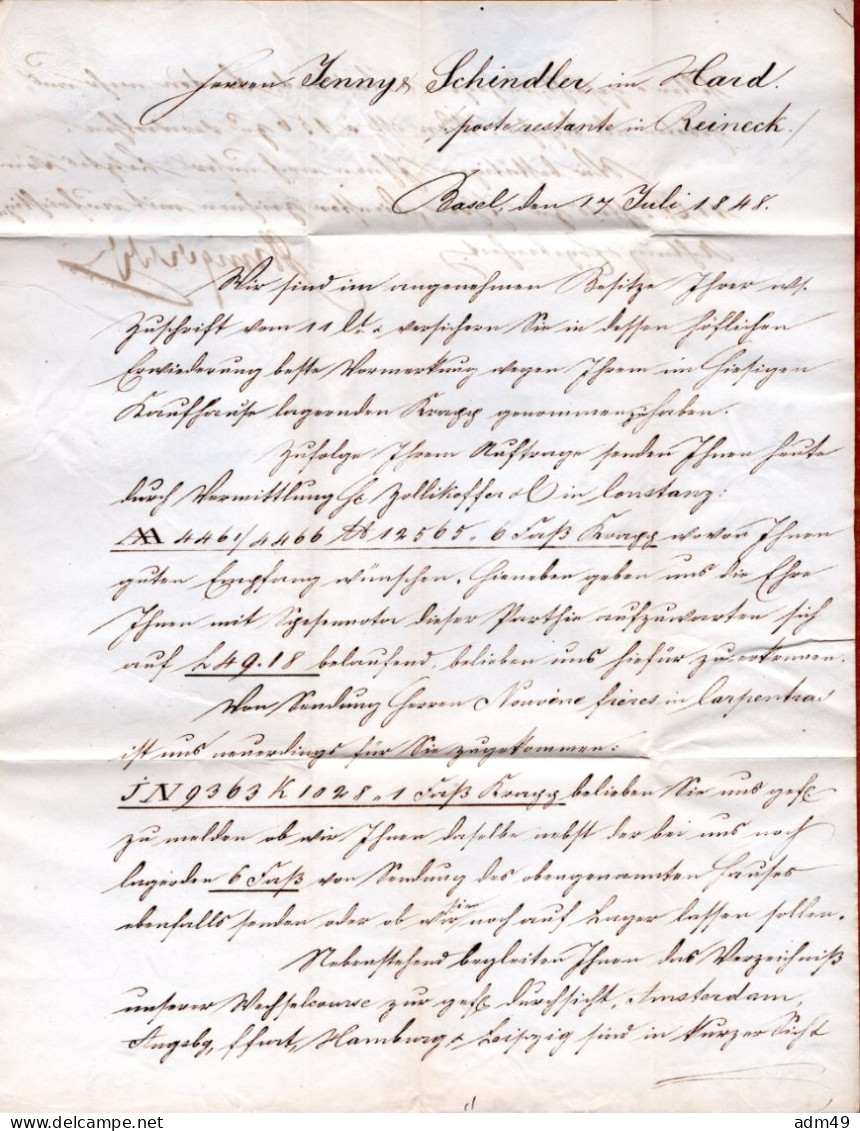 Herren Jenny & Schindler, im Hard.
poste restante in Reineck./
Basel, den 17 Juli 1848.
Wir sind im angenehmen Besitze Ihrer w/.
Zuschrift vom 11 lt. & versichern Sie in dessen höflichen
Erwiederung beste Vormerkung wegen Ihrem im hiesigen
Kaufhause lagernden Krapp genommen zu haben.
Zufolge Ihrem Auftrage senden Ihnen heute
durch Vermittlung H. Zollikoffer & C in Constanz:
4461/4466 12565. 6 Faß Krapp wovon Ihnen
guten Empfang wünschen. Hieneben geben uns die Ehre
Ihnen mit Spesennota dieser Parthie aufzuwarten sich
auf L 49.18 belaufend, belieben uns hiefür zu erkennen.
Von Sendung Herren frères in Carpentras
ist uns neuerdings für Sie zugekommen:
JN 9363 K 1028. 1 Faß Krapp belieben Sie uns gefl
zu melden ob wir Ihnen dasselbe nebst der bei uns noch
lagernden 6 Faß von Sendung des obengenannten Hauses
ebenfalls senden oder ob wir sie noch auf Lager lassen sollen.
Nebenstehend begleiten Ihnen das Verzeichniß
unserer Wechselcourse zur gefl Durchsicht, Amsterdam,
Augsbg, Ffurt, Hamburg & Leipzig sind in kurzer Sicht
adm49